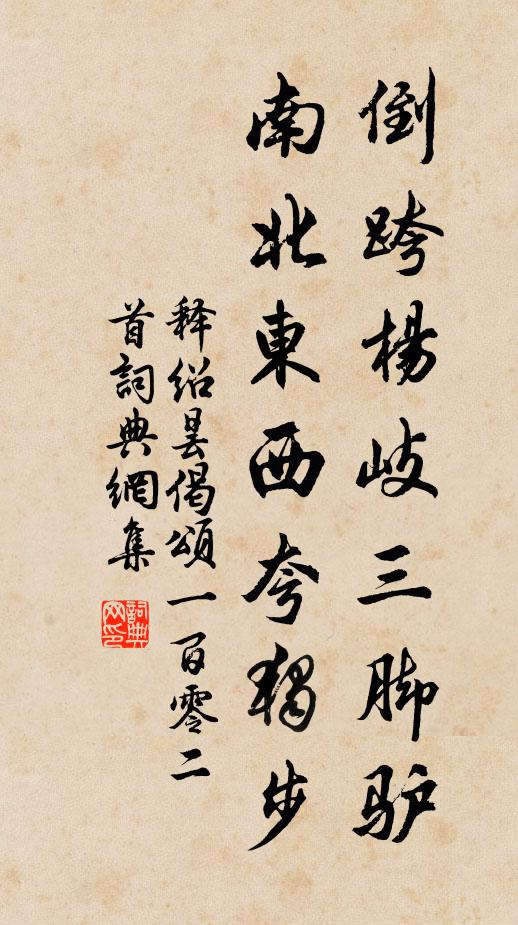 倒跨楊岐三脚驴
南北東西夸獨步
释绍昙偈颂一百零二
首詞典網集
詞典网印